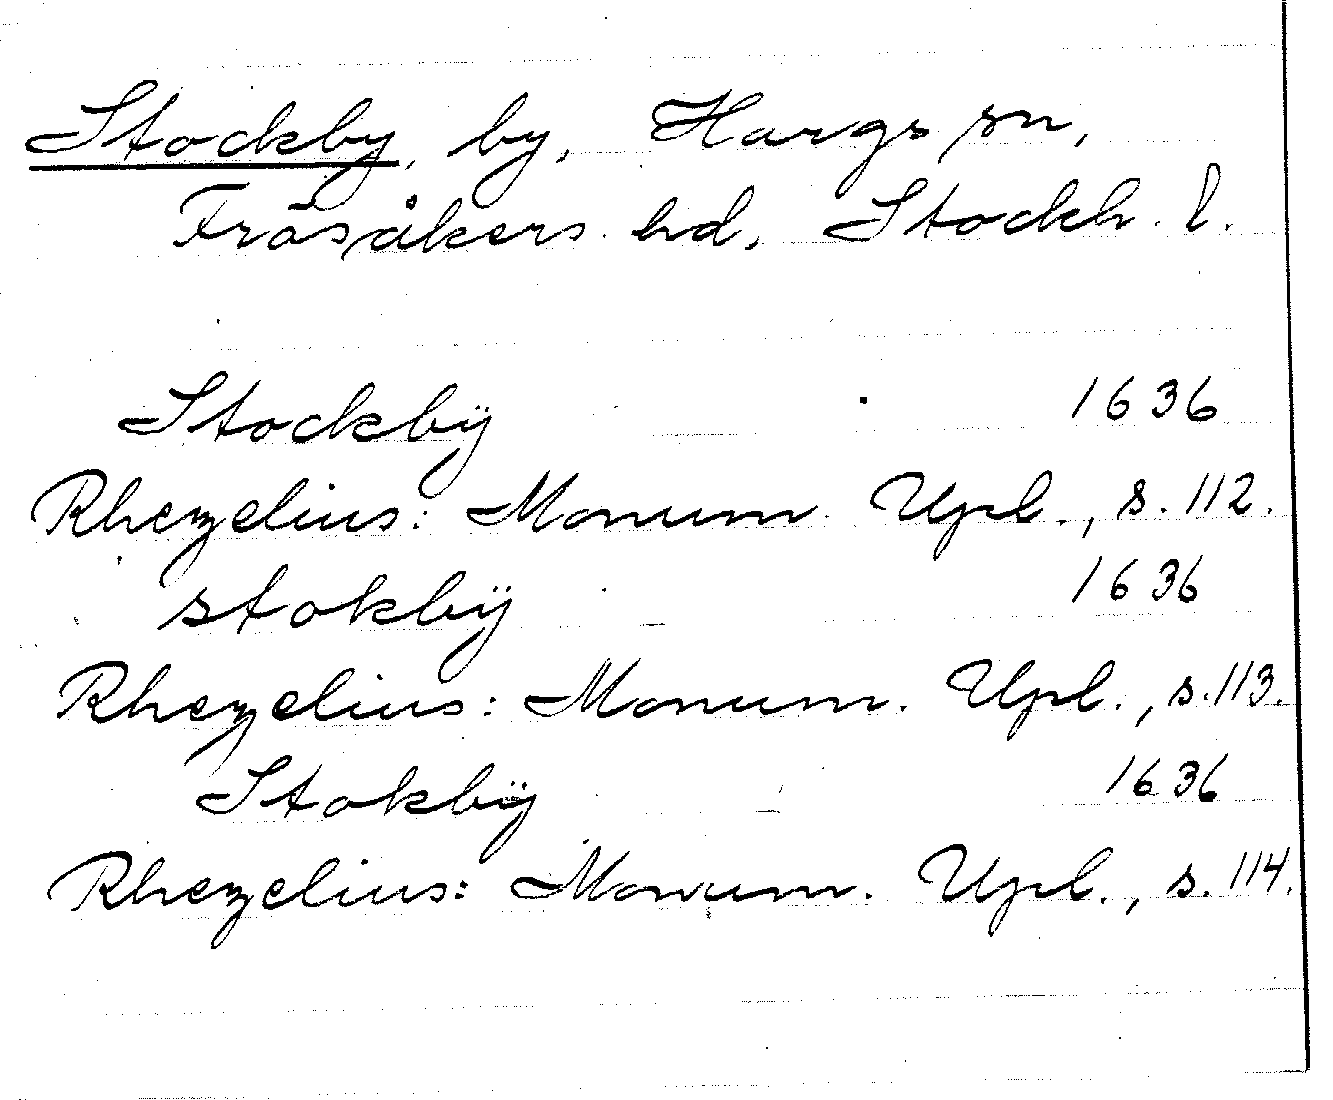 Stockby, by, Hargs sn,
Frösåkers hd, Stockh. l.
Stockbÿ 1636
Rhezelius: Monum. Upl., s. 112.
stokbÿ 1636
Rhezelius: Monum. Upl., s. 113.
Stokbÿ 1636
Rhezelius: Monum. Upl., s. 114.